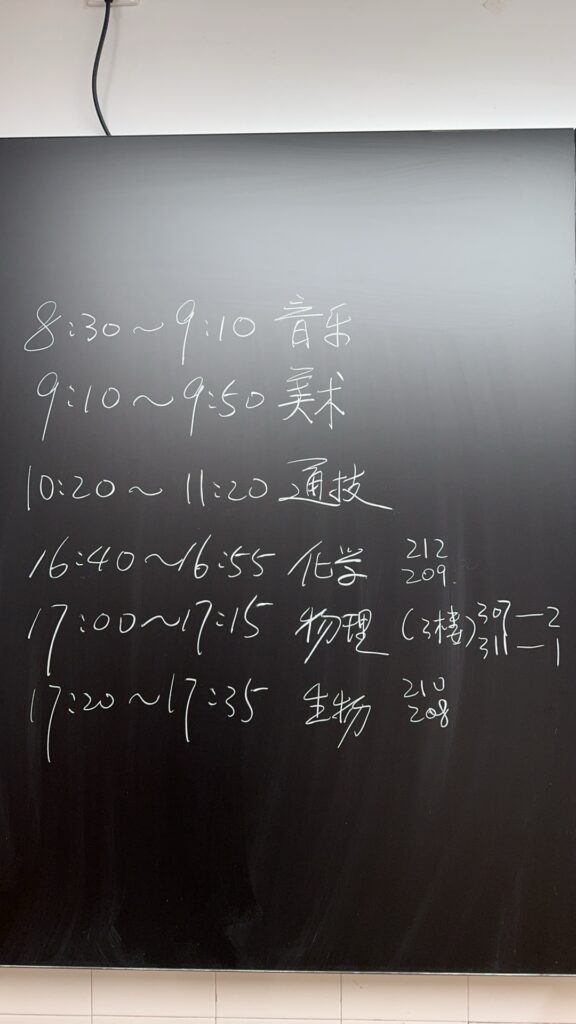 8:30~9:10 音乐
9:10~9:50 美术
10:20~11:20 通技
16:40~16:55 化学 212
209
17:00~17:15 物理 (3楼) 307—2
311—1
17:20~17:35 生物 210
208